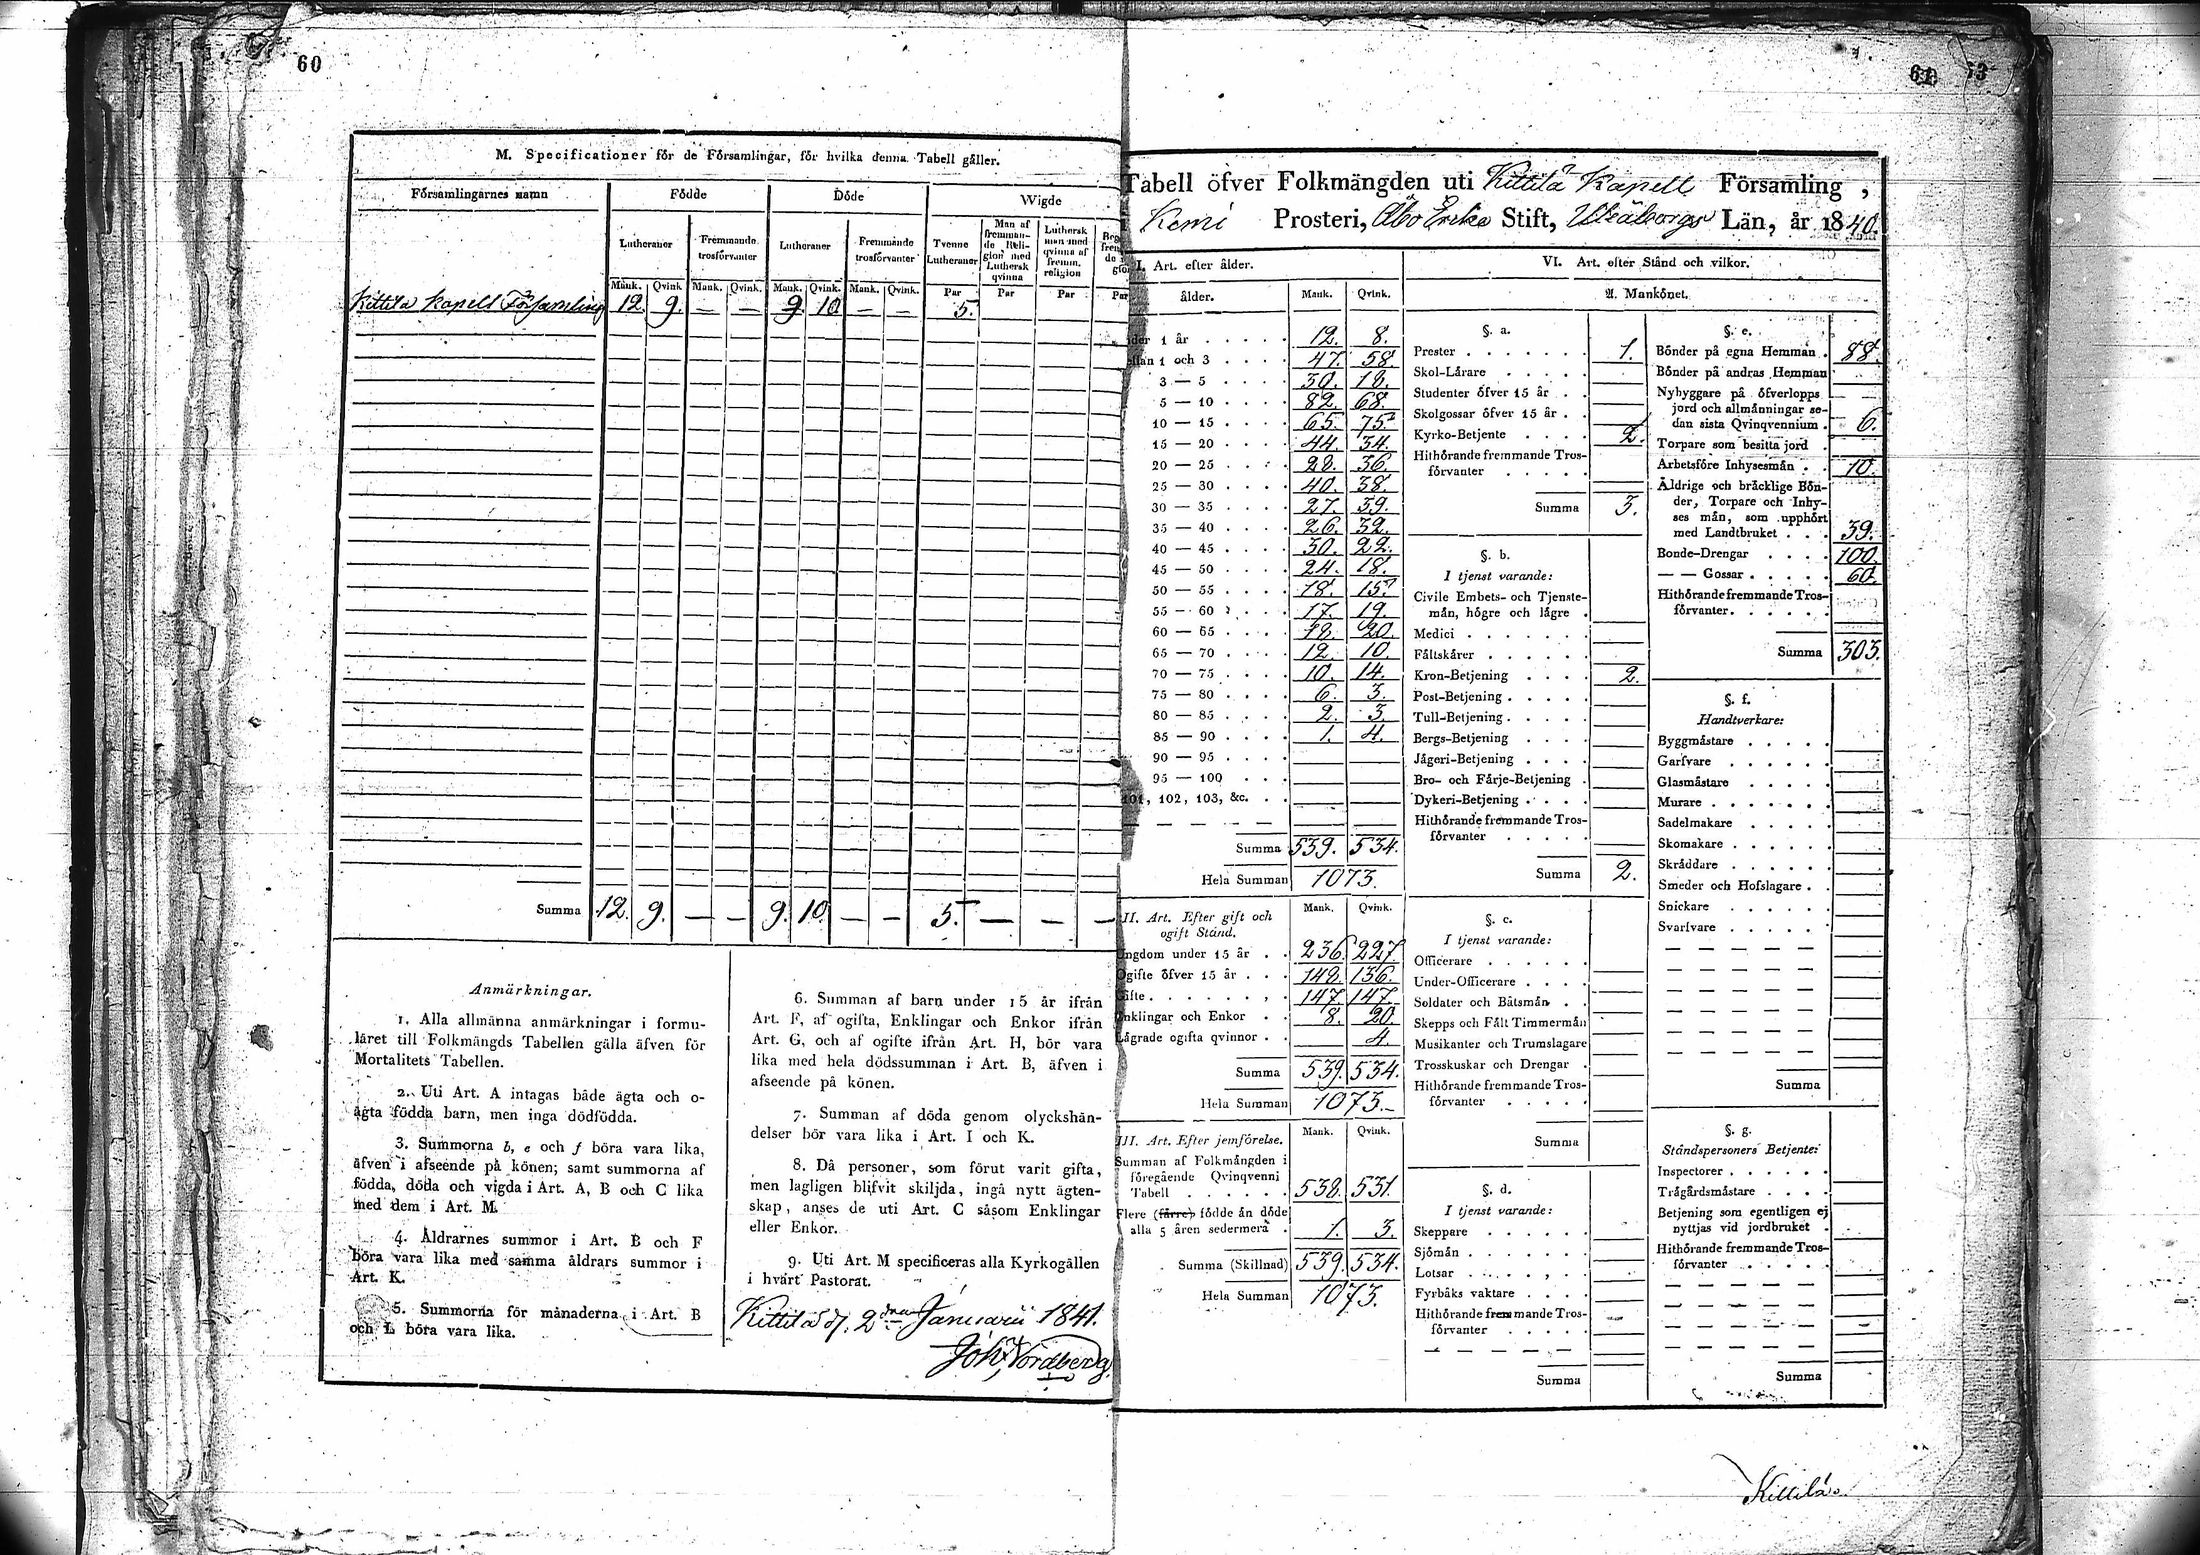 60
M. Specificationer för de Församlingar, för hvilka denna Tabell gäller.
Församlingarnes namn Födde Döde Wigde
Lutheraner Fremmande trosförvanter Lutheraner Fremmande trosförvanter Tvenne Lutheraner Man af fremmande Religion med Luthersk qvinna Luthersk man med qvinna af fremm. religion
Mank. Qvink Mank. Qvink. Mank. Qvink. Mank. Qvink. Par Par Par Par
Kittilä Kapell Församling 12. 9. — — 9. 10. — — 5.
Summa 12. 9. — — 9. 10. — — 5. — — —
Anmärkningar.
1. Alla allmänna anmärkningar i formu-
läret till Folkmängds Tabellen gälla äfven för
Mortalitets Tabellen.
2. Uti Art. A intagas både ägta och o-
ägta födda barn, men inga dödfödda.
3. Summorna b, e och f böra vara lika,
äfven i afseende på könen; samt summorna af
födda, döda och vigda i Art. A, B och C lika
med dem i Art. M.
4. Åldrarnes summor i Art. B och F
böra vara lika med samma åldrars summor i
Art. K.
5. Summorna för månaderna i Art. B
och L böra vara lika.
6. Summan af barn under 15 år ifrån
Art. F, af ogifta, Enklingar och Enkor ifrån
Art. G, och af ogifte ifrån Art. H, bör vara
lika med hela dödssumman i Art. B, äfven i
afseende på könen.
7. Summan af döda genom olyckshän-
delser bör vara lika i Art. I och K.
8. Då personer, som förut varit gifta,
men lagligen blifvit skiljda, ingå nytt ägten-
skap, anses de uti Art. C såsom Enklingar
eller Enkor.
9. Uti Art. M specificeras alla Kyrkogällen
i hvart Pastorat.
Kittilä d. 2dra Januarii 1841.
Joh. Nordberg
61
Tabell öfver Folkmängden uti Kittilä Kapell Församling,
Kemi Prosteri, Åbo Erke Stift, Uleåborgs Län, år 1840.
I. Art. efter ålder.
ålder. Mank. Qvink.
1 år 12. 8.
1 och 3 47. 58.
3 — 5 30. 18.
5 — 10 82. 68.
10 — 15 65. 75.
15 — 20 44. 34.
20 — 25 28. 36.
25 — 30 40. 38.
30 — 35 27. 39.
35 — 40 26. 32.
40 — 45 30. 22.
45 — 50 24. 18.
50 — 55 18. 15.
55 — 60 17. 19.
60 — 65 18. 20.
65 — 70 12. 10.
70 — 75 10. 14.
75 — 80 6. 3.
80 — 85 2. 3.
85 — 90 1. 4.
90 — 95
95 — 100
101, 102, 103, &c.
Summa 539. 534.
Hela Summan 1073.
II. Art. Efter gift och ogift Stånd. Mank. Qvink.
Ungdom under 15 år 236. 227.
Ogifte öfver 15 år 148. 136.
Gifte 147. 147.
Enklingar och Enkor 8. 20.
Lägrade ogifta qvinnor 4.
Summa 539. 534.
Hela Summan 1073.
III. Art. Efter jemförelse. Mank. Qvink.
Summan af Folkmängden i
föregående Qvinqvenni
Tabell 538. 531.
Flere (färre) födde än döde
alla 5 åren sedermera 1. 3.
Summa (Skillnad) 539. 534.
Hela Summan 1073.
VI. Art. efter Stånd och vilkor.
A. Mankönet.
§. a.
Prester 1.
Skol-Lärare
Studenter öfver 15 år
Skolgossar öfver 15 år
Kyrko-Betjente 2.
Hithörande fremmande Tros-
förvanter
Summa 3.
§. b.
I tjenst varande:
Civile Embets- och Tjenste-
män, högre och lägre
Medici
Fältskärer
Kron-Betjening 2.
Post-Betjening
Tull-Betjening
Bergs-Betjening
Jägeri-Betjening
Bro- och Färje-Betjening
Dykeri-Betjening
Hithörande fremmande Tros-
förvanter
Summa 2.
§. c.
I tjenst varande:
Officerare
Under-Officerare
Soldater och Båtsmän
Skepps och Fält Timmermän
Musikanter och Trumslagare
Trosskuskar och Drengar
Hithörande fremmande Tros-
förvanter
Summa
§. d.
I tjenst varande:
Skeppare
Sjömän
Lotsar
Fyrbåks vaktare
Hithörande fremmande Tros-
förvanter
Summa
§. e.
Bönder på egna Hemman 88.
Bönder på andras Hemman
Nybyggare på öfverlopps
jord och allmänningar se-
dan sista Qvinqvennium 6.
Torpare som besitta jord
Arbetsföre Inhysesmän 10.
Åldrige och bräcklige Bön-
der, Torpare och Inhy-
ses män, som upphört
med Landtbruket 39.
Bonde-Drengar 100.
— — Gossar 60.
Hithörande fremmande Tros-
förvanter
Summa 303.
§. f.
Handtverkare:
Byggmästare
Garfvare
Glasmästare
Murare
Sadelmakare
Skomakare
Skräddare
Smeder och Hofslagare
Snickare
Svarfvare
Summa
§. g.
Ståndspersoners Betjente:
Inspectorer
Trägårdsmästare
Betjening som egentligen ej
nyttjas vid jordbruket
Hithörande fremmande Tros-
förvanter
Summa
Kittilä.